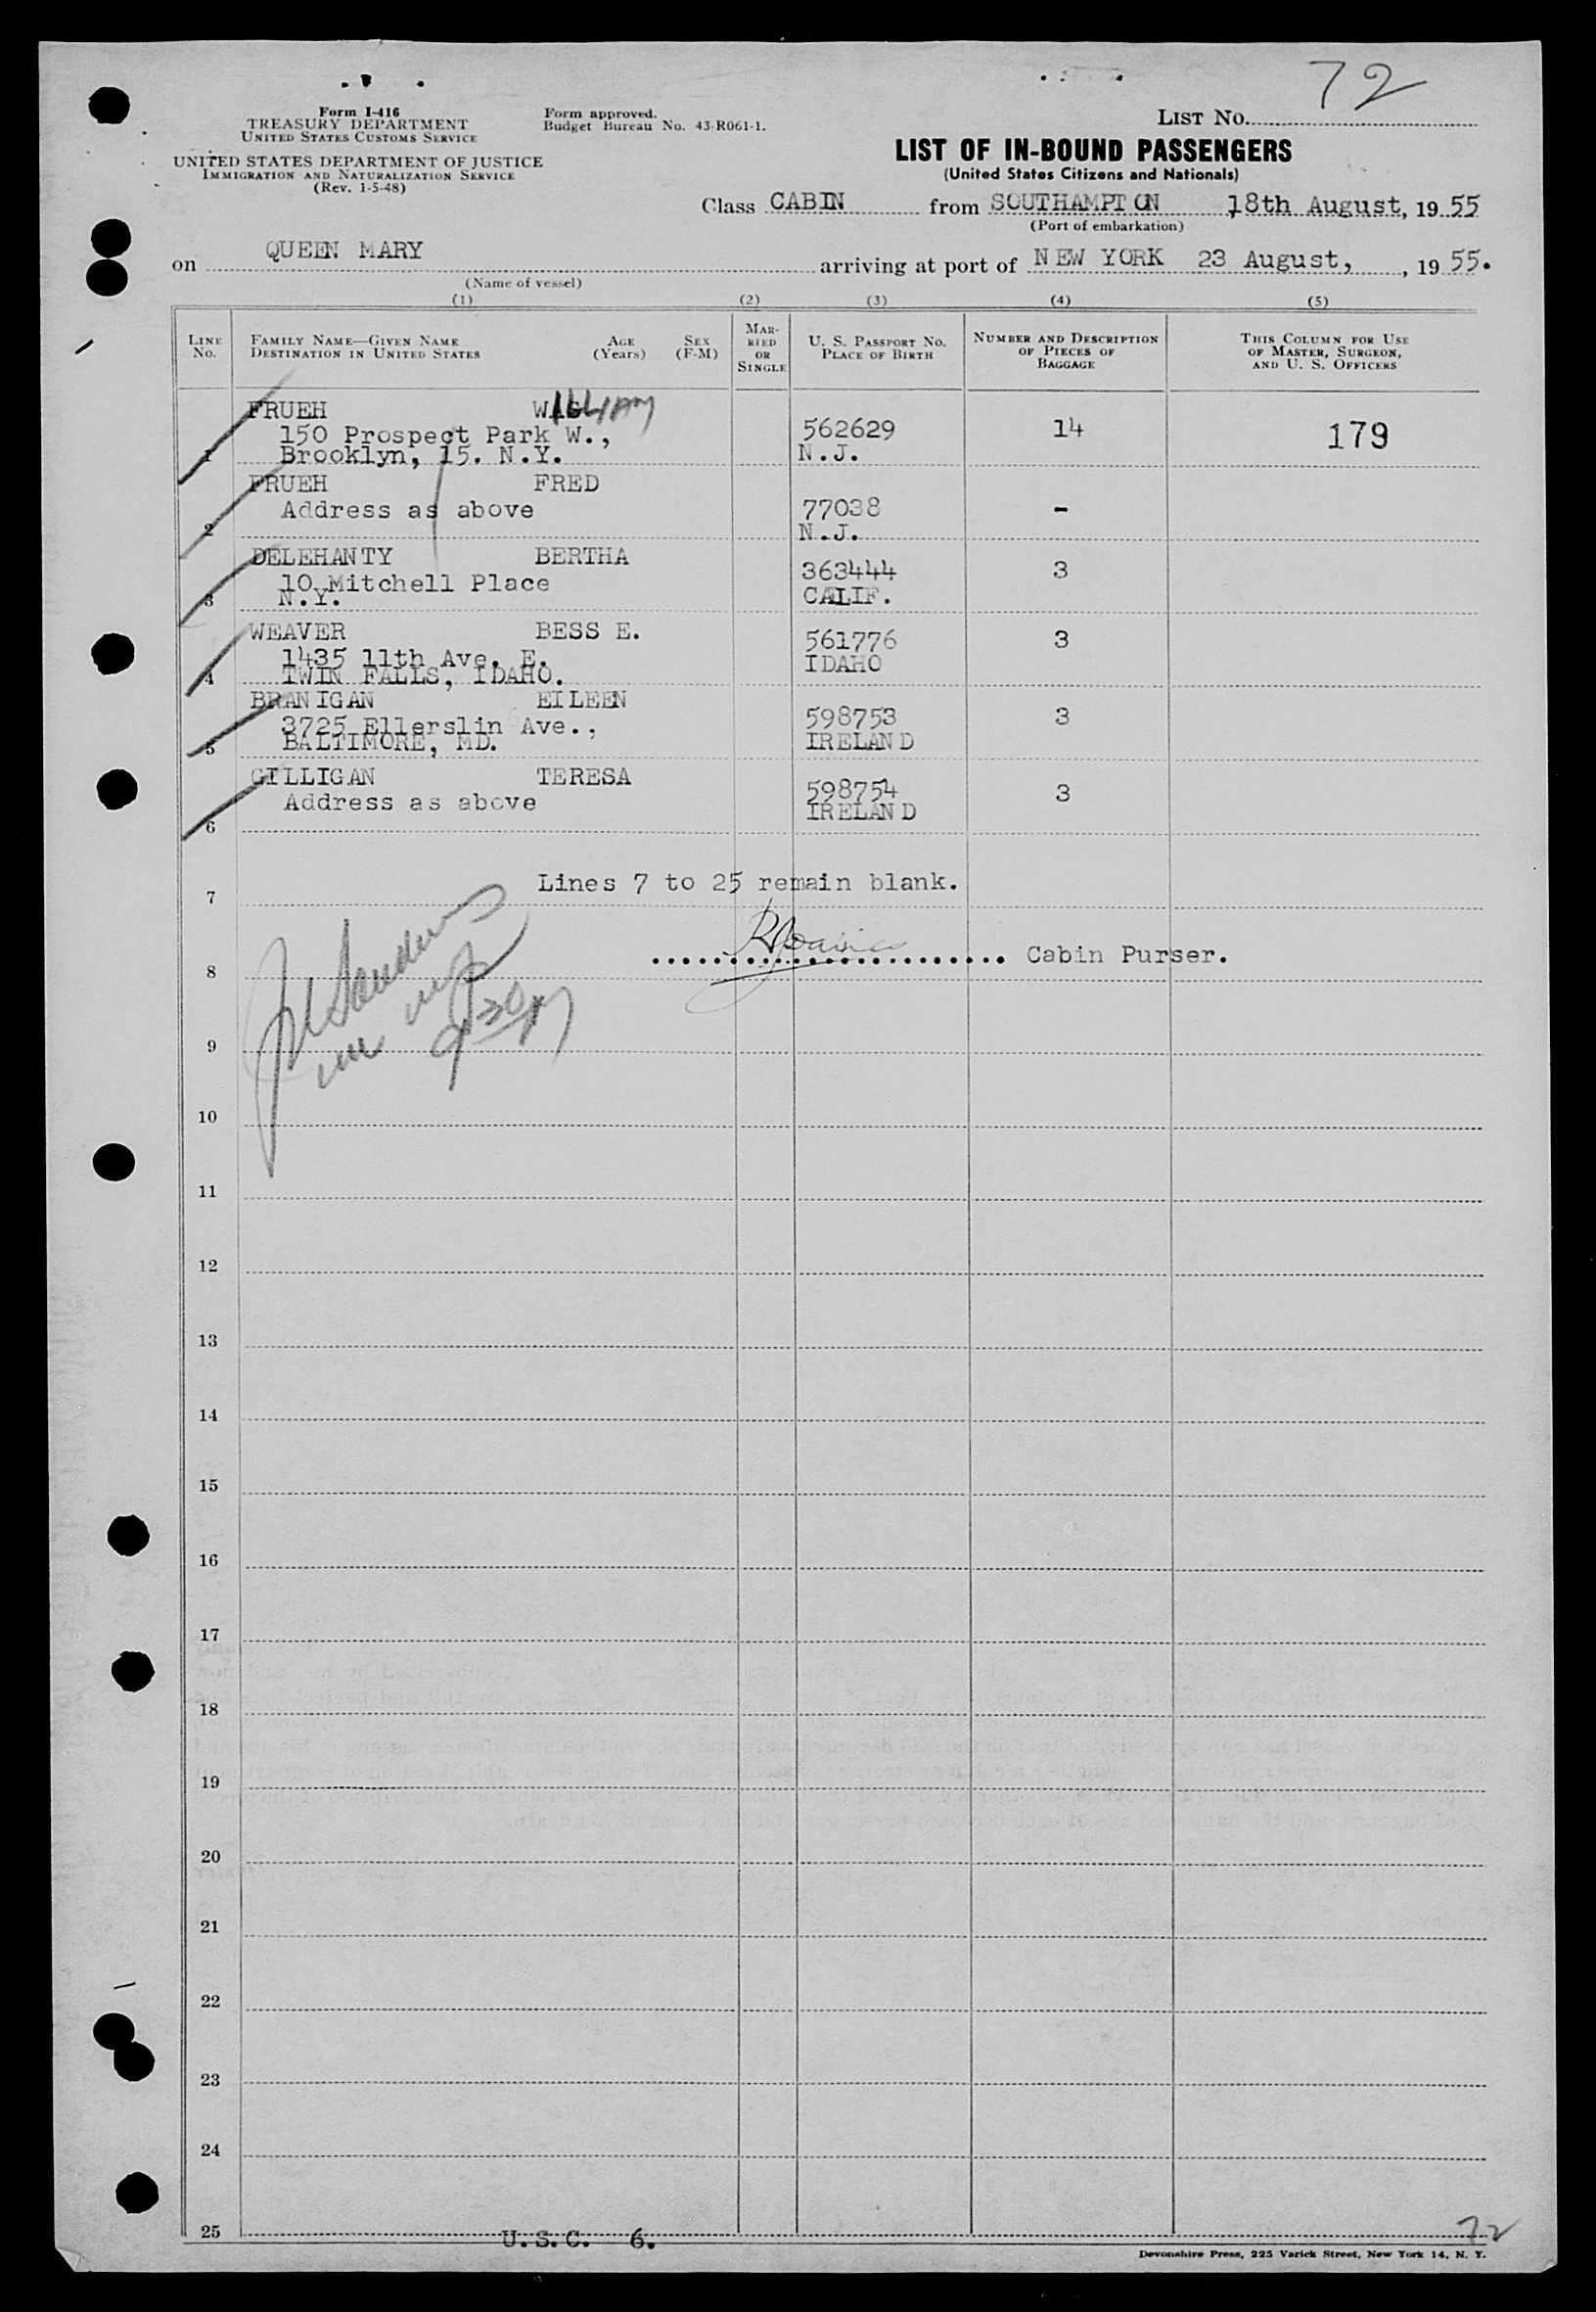 72
Form I-416
TREASURY DEPARTMENT
UNITED STATES CUSTOMS SERVICE
UNITED STATES DEPARTMENT OF JUSTICE
IMMIGRATION AND NATURALIZATION SERVICE
(Rev. 1-5-48)
Form approved.
Budget Bureau No. 43-R061-1.
LIST NO.
LIST OF IN-BOUND PASSENGERS
(United States Citizens and Nationals)
Class CABIN from SOUTHAMPTON 18th August, 1955
(Port of embarkation)
on QUEEN MARY arriving at port of NEW YORK 23 August, , 1955.
(Name of vessel)
(1) (2) (3) (4) (5)
LINE NO.
FAMILY NAME—GIVEN NAME DESTINATION IN UNITED STATES
AGE (Years)
SEX (F-M)
MARRIED OR SINGLE
U. S. PASSPORT NO. PLACE OF BIRTH
NUMBER AND DESCRIPTION OF PIECES OF BAGGAGE
THIS COLUMN FOR USE OF MASTER, SURGEON, AND U. S. OFFICERS
FRUEH WILLIAM
150 Prospect Park W., 562629 14 179
1 Brooklyn, 15. N.Y. N.J.
FRUEH FRED
Address as above 77038 -
2 N.J.
DELEHANTY BERTHA
10 Mitchell Place 363444 3
3 N.Y. CALIF.
WEAVER BESS E.
1435 11th Ave. E. 561776 3
4 TWIN FALLS, IDAHO. IDAHO
BRANIGAN EILEEN
3725 Ellerslin Ave., 598753 3
5 BALTIMORE, MD. IRELAND
GILLIGAN TERESA
Address as above 598754 3
6 IRELAND
7 Lines 7 to 25 remain blank.
8 Cabin Purser.
9
10
11
12
13
14
15
16
17
18
19
20
21
22
23
24
25 U.S.C. 6.
72
Devonshire Press, 225 Varick Street, New York 14, N. Y.